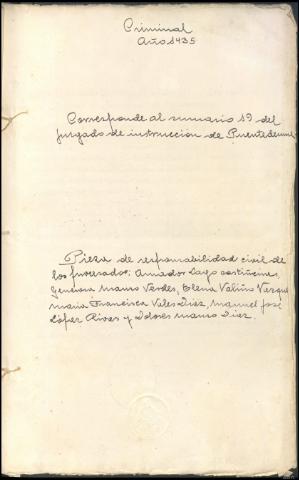 Criminal
Año 1435
Corresponde al sumario 19 del
juzgado de instrucción de Puentedeume
Pieza de responsabilidad civil de
los procesados: Amador Lago
Generosa Mauro Verdes, Elena Valiño
Maria Francisca Vales Diaz, Manuel José
López Rivas y Dolores Mauro Diaz.